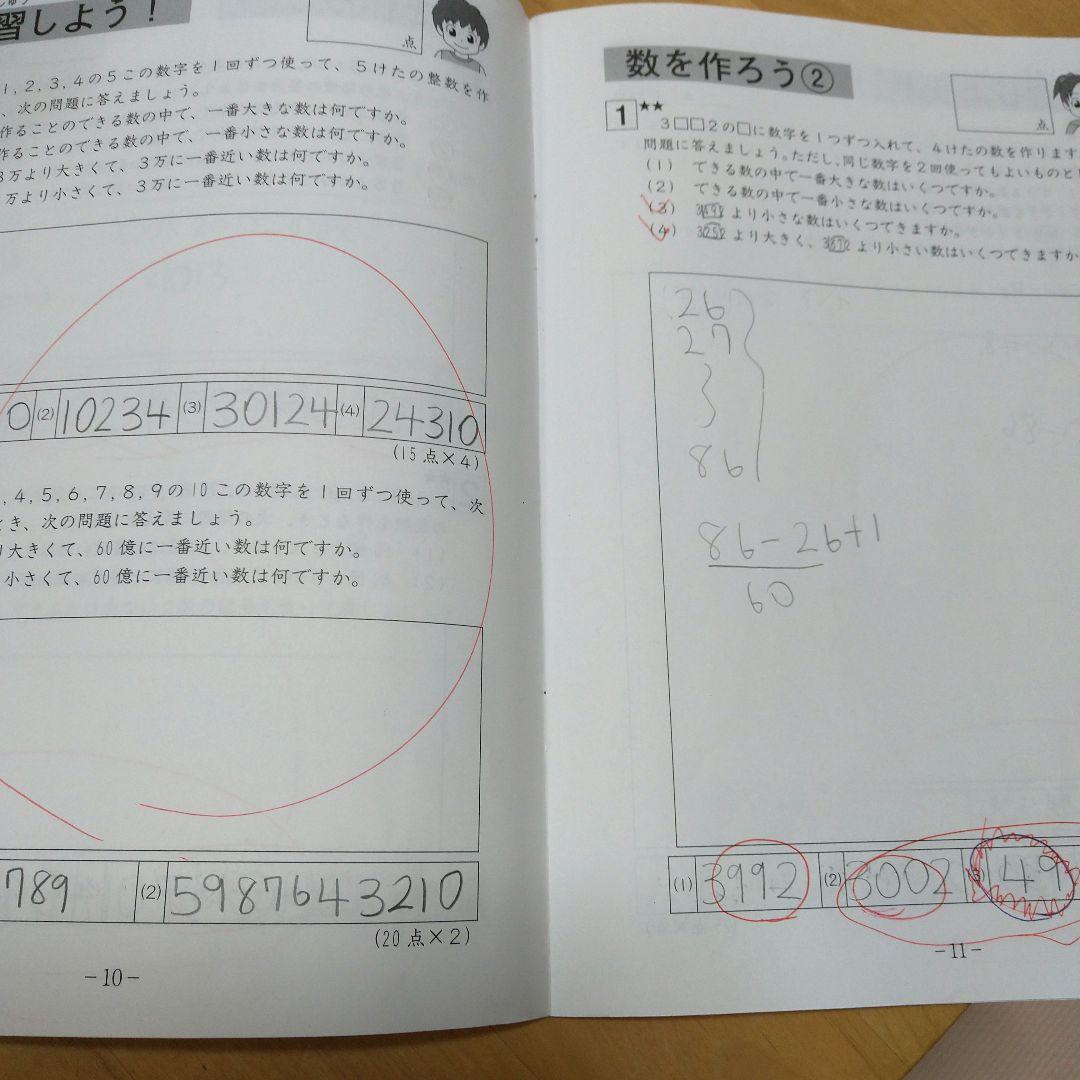 習しよう!
点
1, 2, 3, 4の5この数字を1回ずつ使って、5けたの整数を作
、次の問題に答えましょう。
作ることのできる数の中で、一番大きな数は何ですか。
作ることのできる数の中で、一番小さな数は何ですか。
3万より大きくて、3万に一番近い数は何ですか。
万より小さくて、3万に一番近い数は何ですか。
0 (2) 10234 (3) 30124 (4) 24310
(15点×4)
, 4, 5, 6, 7, 8, 9の10この数字を1回ずつ使って、次
とき、次の問題に答えましょう。
り大きくて、60億に一番近い数は何ですか。
小さくて、60億に一番近い数は何ですか。
789 (2) 5987643210
(20点×2)
-10-
数を作ろう②
点
1 ★★
3□□2の□に数字を1つずつ入れて、4けたの数を作ります
問題に答えましょう。ただし、同じ数字を2回使ってもよいものと
(1) できる数の中で一番大きな数はいくつですか。
(2) できる数の中で一番小さな数はいくつですか。
(3) より小さな数はいくつできますか。
(4) 3252より大きく、3872より小さい数はいくつできますか
26
27
86
86-26+1
60
(1) 3992 (2) 3002 (3) 49
-11-